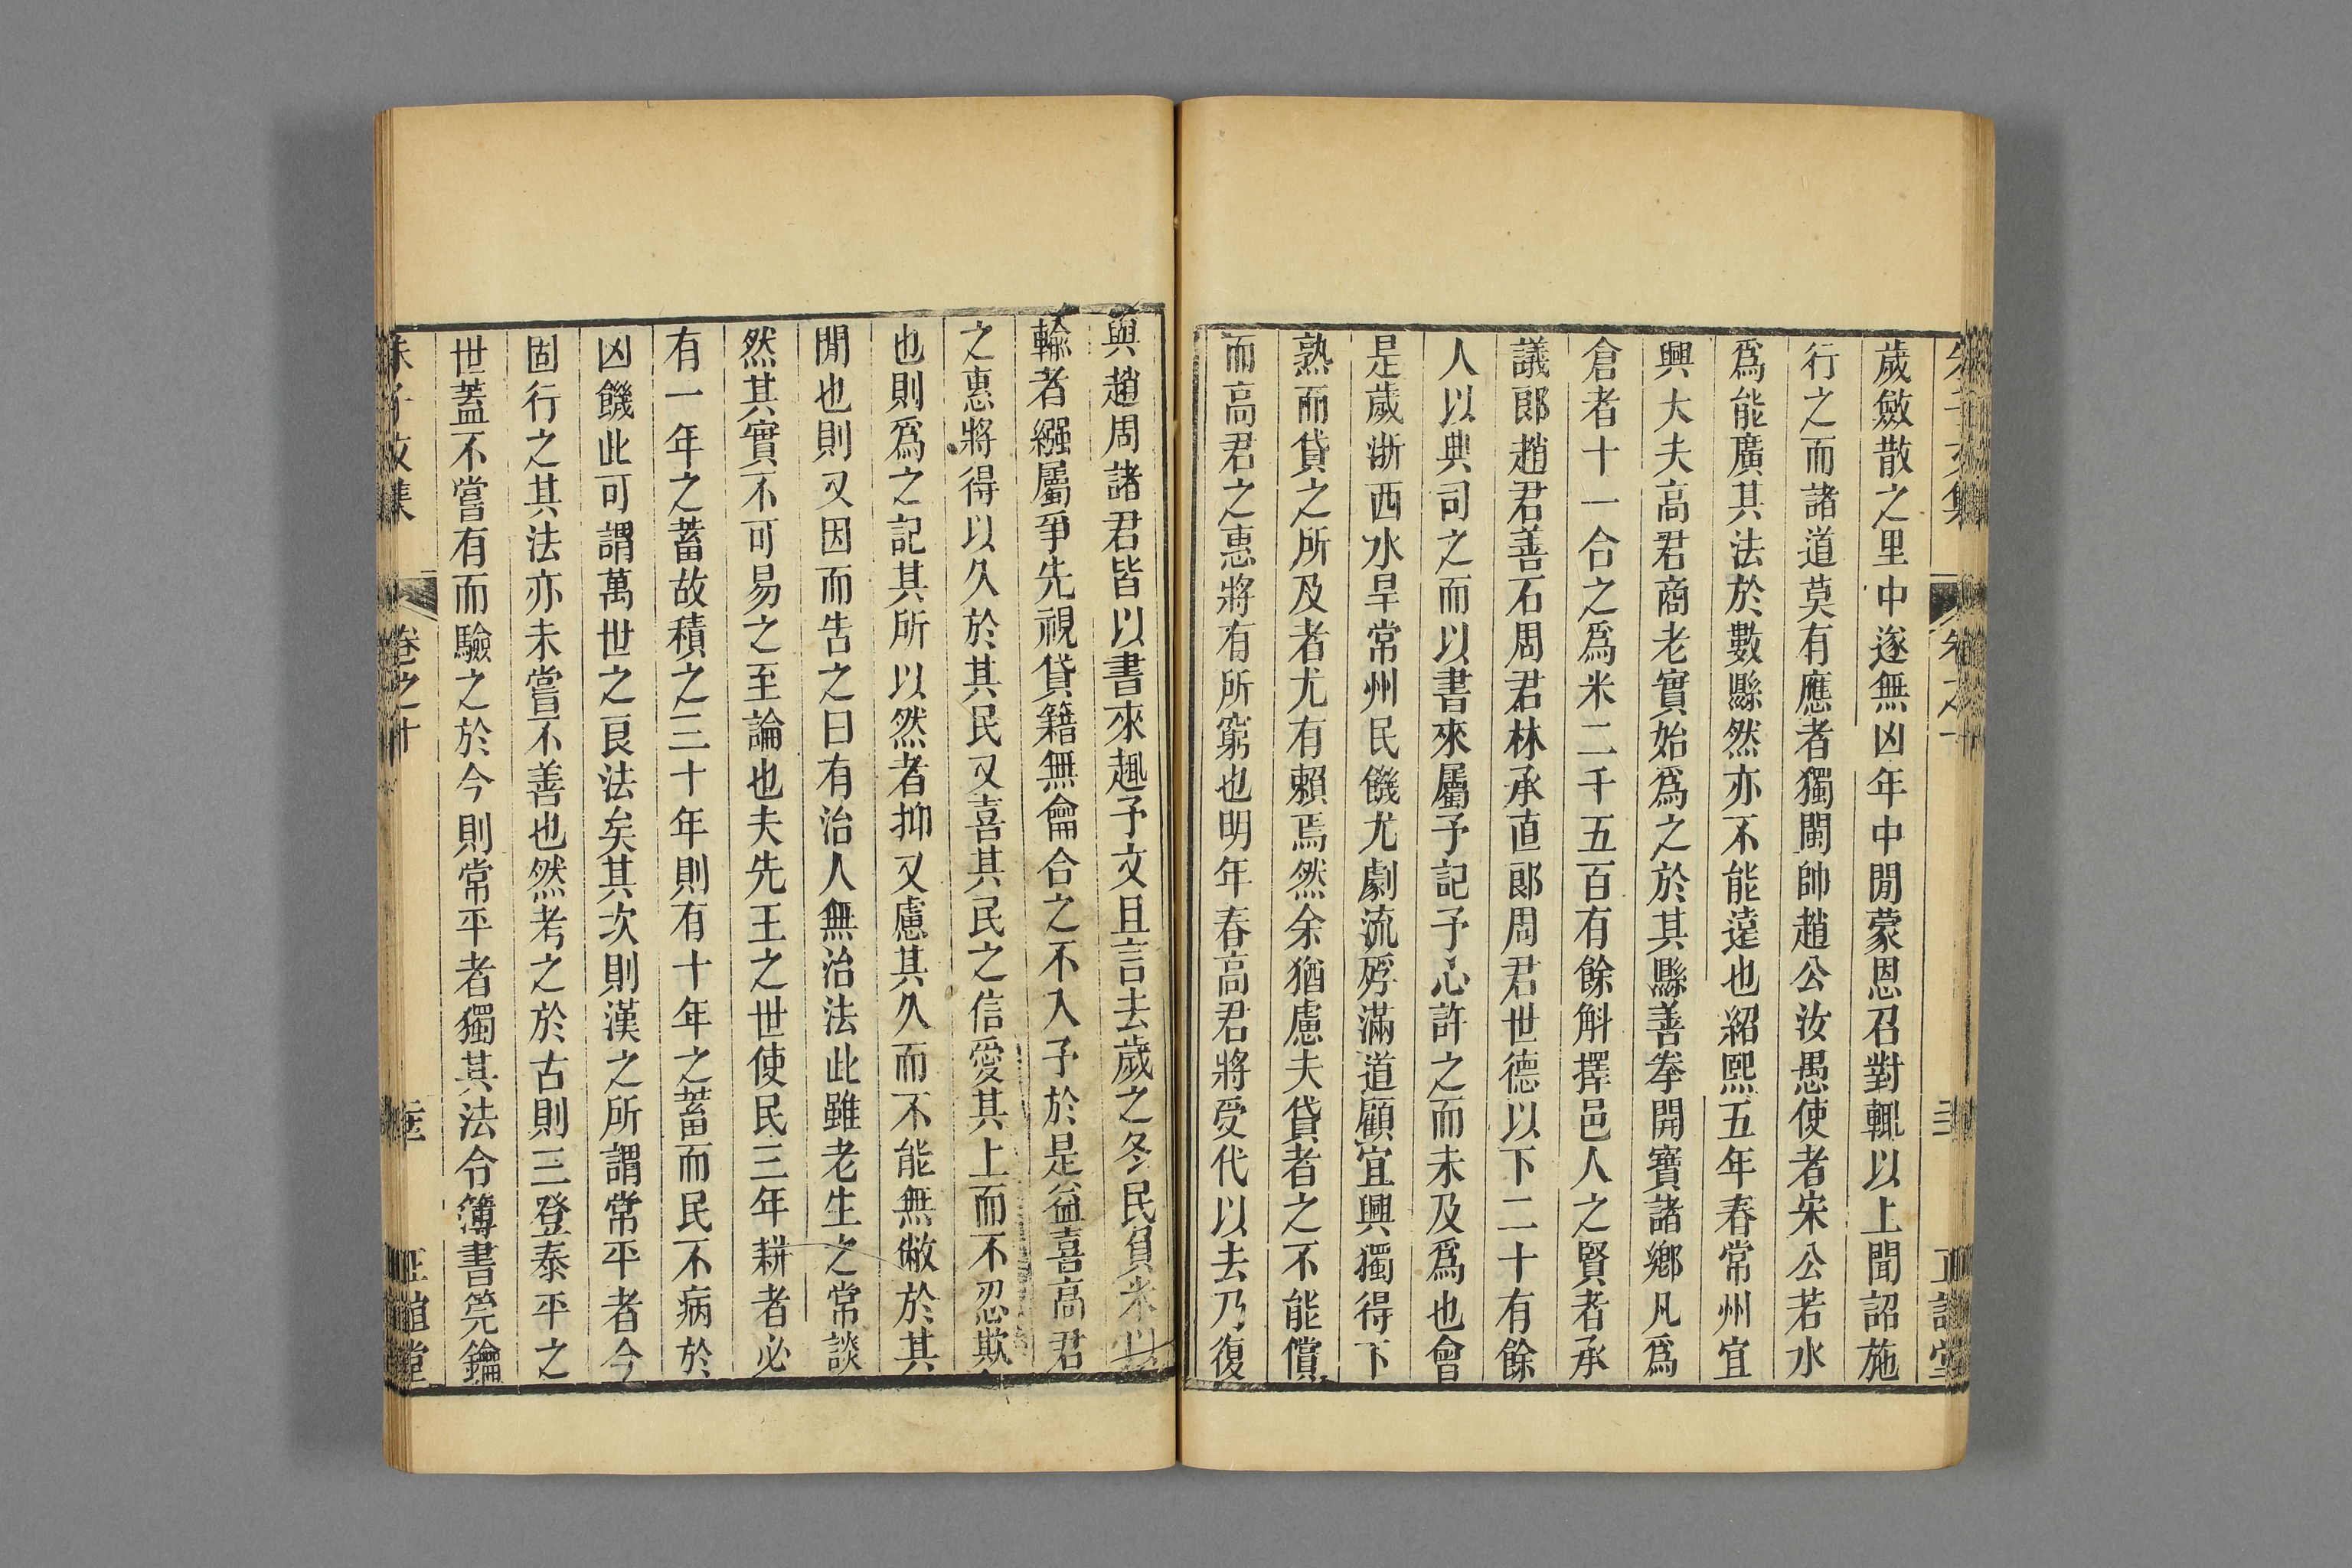 歲斂散之里中遂無凶年中閒蒙恩召對輒以上聞詔施
行之而諸道莫有應者獨閩帥趙公汝愚使者宋公若水
爲能廣其法於數縣然亦不能遠也紹熙五年春常州宜
興大夫高君商老實始爲之於其縣善拳開寶諸鄉凡爲
倉者十一合之爲米二千五百有餘斛擇邑人之賢者承
議郎趙君善石周君林承直郎周君世德以下二十有餘
人以典司之而以書來屬予記予心許之而未及爲也會
是歲浙西水旱常州民饑尤劇流殍滿道顧宜興獨得下
熟而貸之所及者尤有賴焉然余猶慮夫貸者之不能償
而高君之惠將有所窮也明年春高君將受代以去乃復
與趙周諸君皆以書來趣予文且言去歲之冬民負米以
輸者繦屬爭先視貸籍無龠合之不入予於是益喜高君
之惠將得以久於其民又喜其民之信愛其上而不忍欺
也則爲之記其所以然者抑又慮其久而不能無敝於其
閒也則又因而告之曰有治人無治法此雖老生之常談
然其實不可易之至論也夫先王之世使民三年耕者必
有一年之蓄故積之三十年則有十年之蓄而民不病於
凶饑此可謂萬世之良法矣其次則漢之所謂常平者今
固行之其法亦未嘗不善也然考之於古則三登泰平之
世蓋不嘗有而驗之於今則常平者獨其法令簿書筦鑰
朱子文集
卷之十
正誼堂